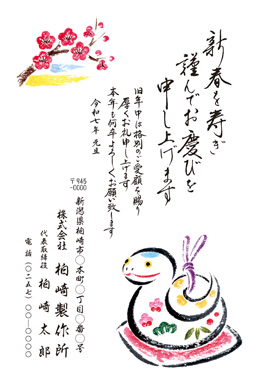 新春を寿ぎ
謹んでお慶びを
申し上げます
旧年中は格別のご愛顧を賜り
厚くお礼申し上げます
本年も何卒よろしくお願い致します
令和七年 元旦
〒945
-0000
新潟県柏崎市〇本町〇丁目〇番〇号
株式会社 柏崎製作所
代表取締役 柏崎太郎
電話(〇二五七)〇〇-〇〇〇〇